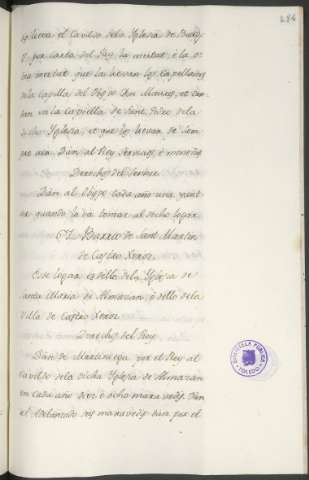 284
que lieva el cavildo dela Iglesia de Burg.
por carta del Rey la meitat, è la o
tra meitat que la lievan los Capellanes
dela Capilla del Obispo Don Mauriz, et cap
tan en la Capiella de Sant Pedro dela
dicha Iglesia, et que los lievan de siem
pre acá. Dan al Rey servicios, è monedas
Derechos del Señor
Dan al Obispo cada año una yant
ar quando la va tomar al dicho logar.
El Barrio de Sant Martin
de Castro Xeriz.
Este logar es dello dela Yglesia de
Santa Maria de Almazan è dello dela
Villa de Castro Xeriz
Derechos del Rey
Dan de Martiniega por el Rey al
Cavildo dela dicha Yglesia de Almazan
en cada año diez è ocho maravedis. Dan
al Adelantado seis maravedis. Dan por el
BIBLIOTECA PUBLICA
TOLEDO